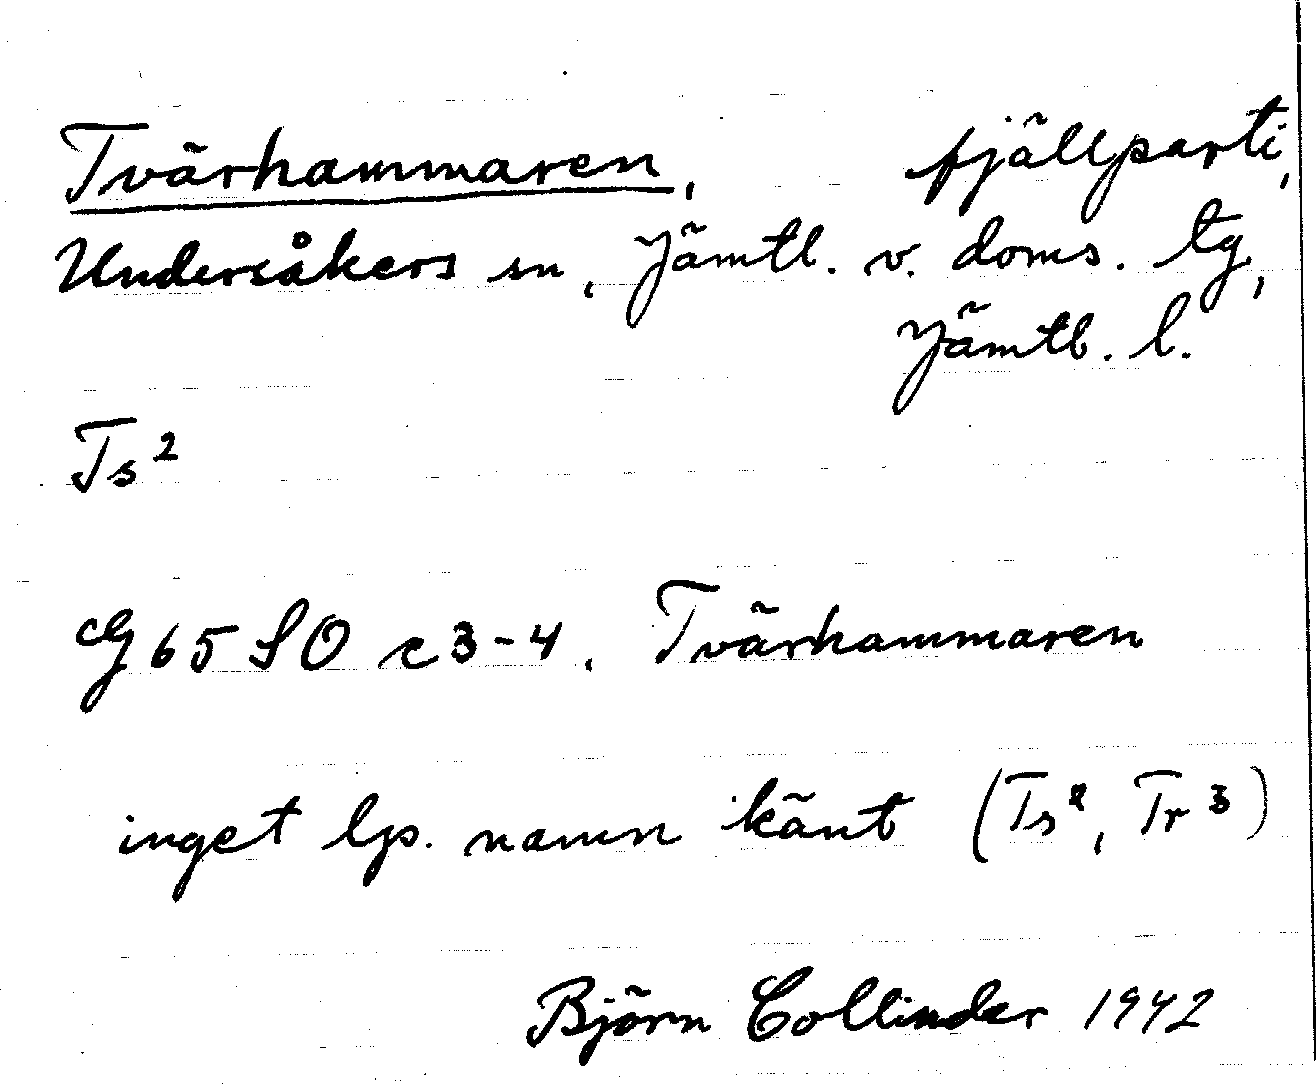 Tvärhammaren, fjällparti,
Undersåkers sn, Jämtl. v. doms. tg,
Jämtl. l.
Ts²
G 65 SO c 3-4. Tvärhammaren
inget lp. namn känt (Ts², Tr³)
Björn Collinder 1942